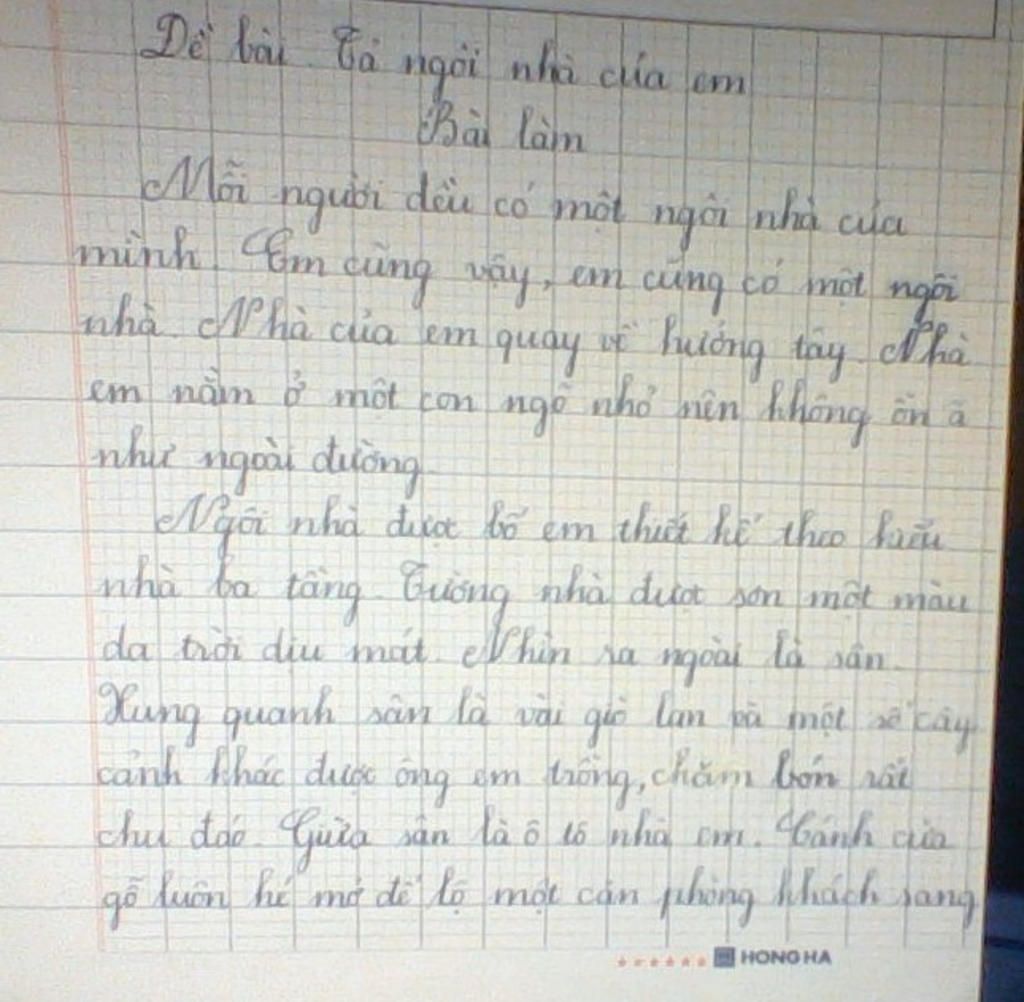 Đề bài Tả ngôi nhà của em
Bài làm
Mỗi người đều có một ngôi nhà của
mình. Em cũng vậy, em cũng có một ngôi
nhà. Nhà của em quay về hướng tây. Nhà
em nằm ở một con ngõ nhỏ nên không ồn ã
như ngoài đường.
Ngôi nhà được bố em thiết kế theo kiểu
nhà ba tầng. Tường nhà được sơn một màu
da trời dịu mát. Nhìn ra ngoài là sân.
Xung quanh sân là vài giò lan và một số cây
cảnh khác được ông em trồng, chăm bón rất
chu đáo. Giữa sân là ô tô nhà em. Cánh cửa
gỗ luôn hé mở để lộ một căn phòng khách sang
HONG HA